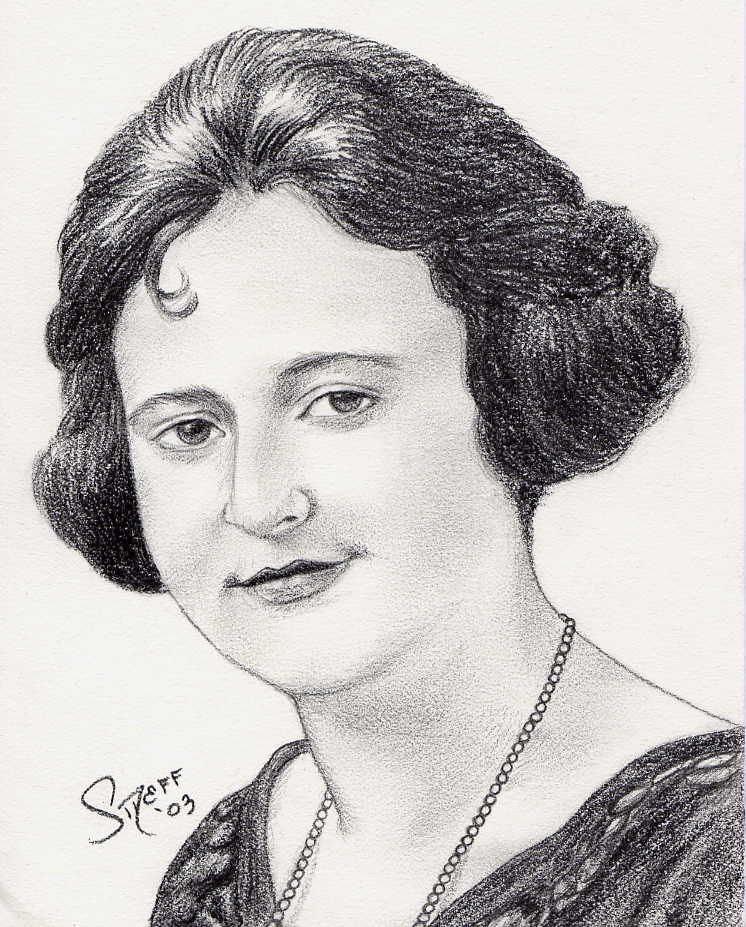 STREFF
'03